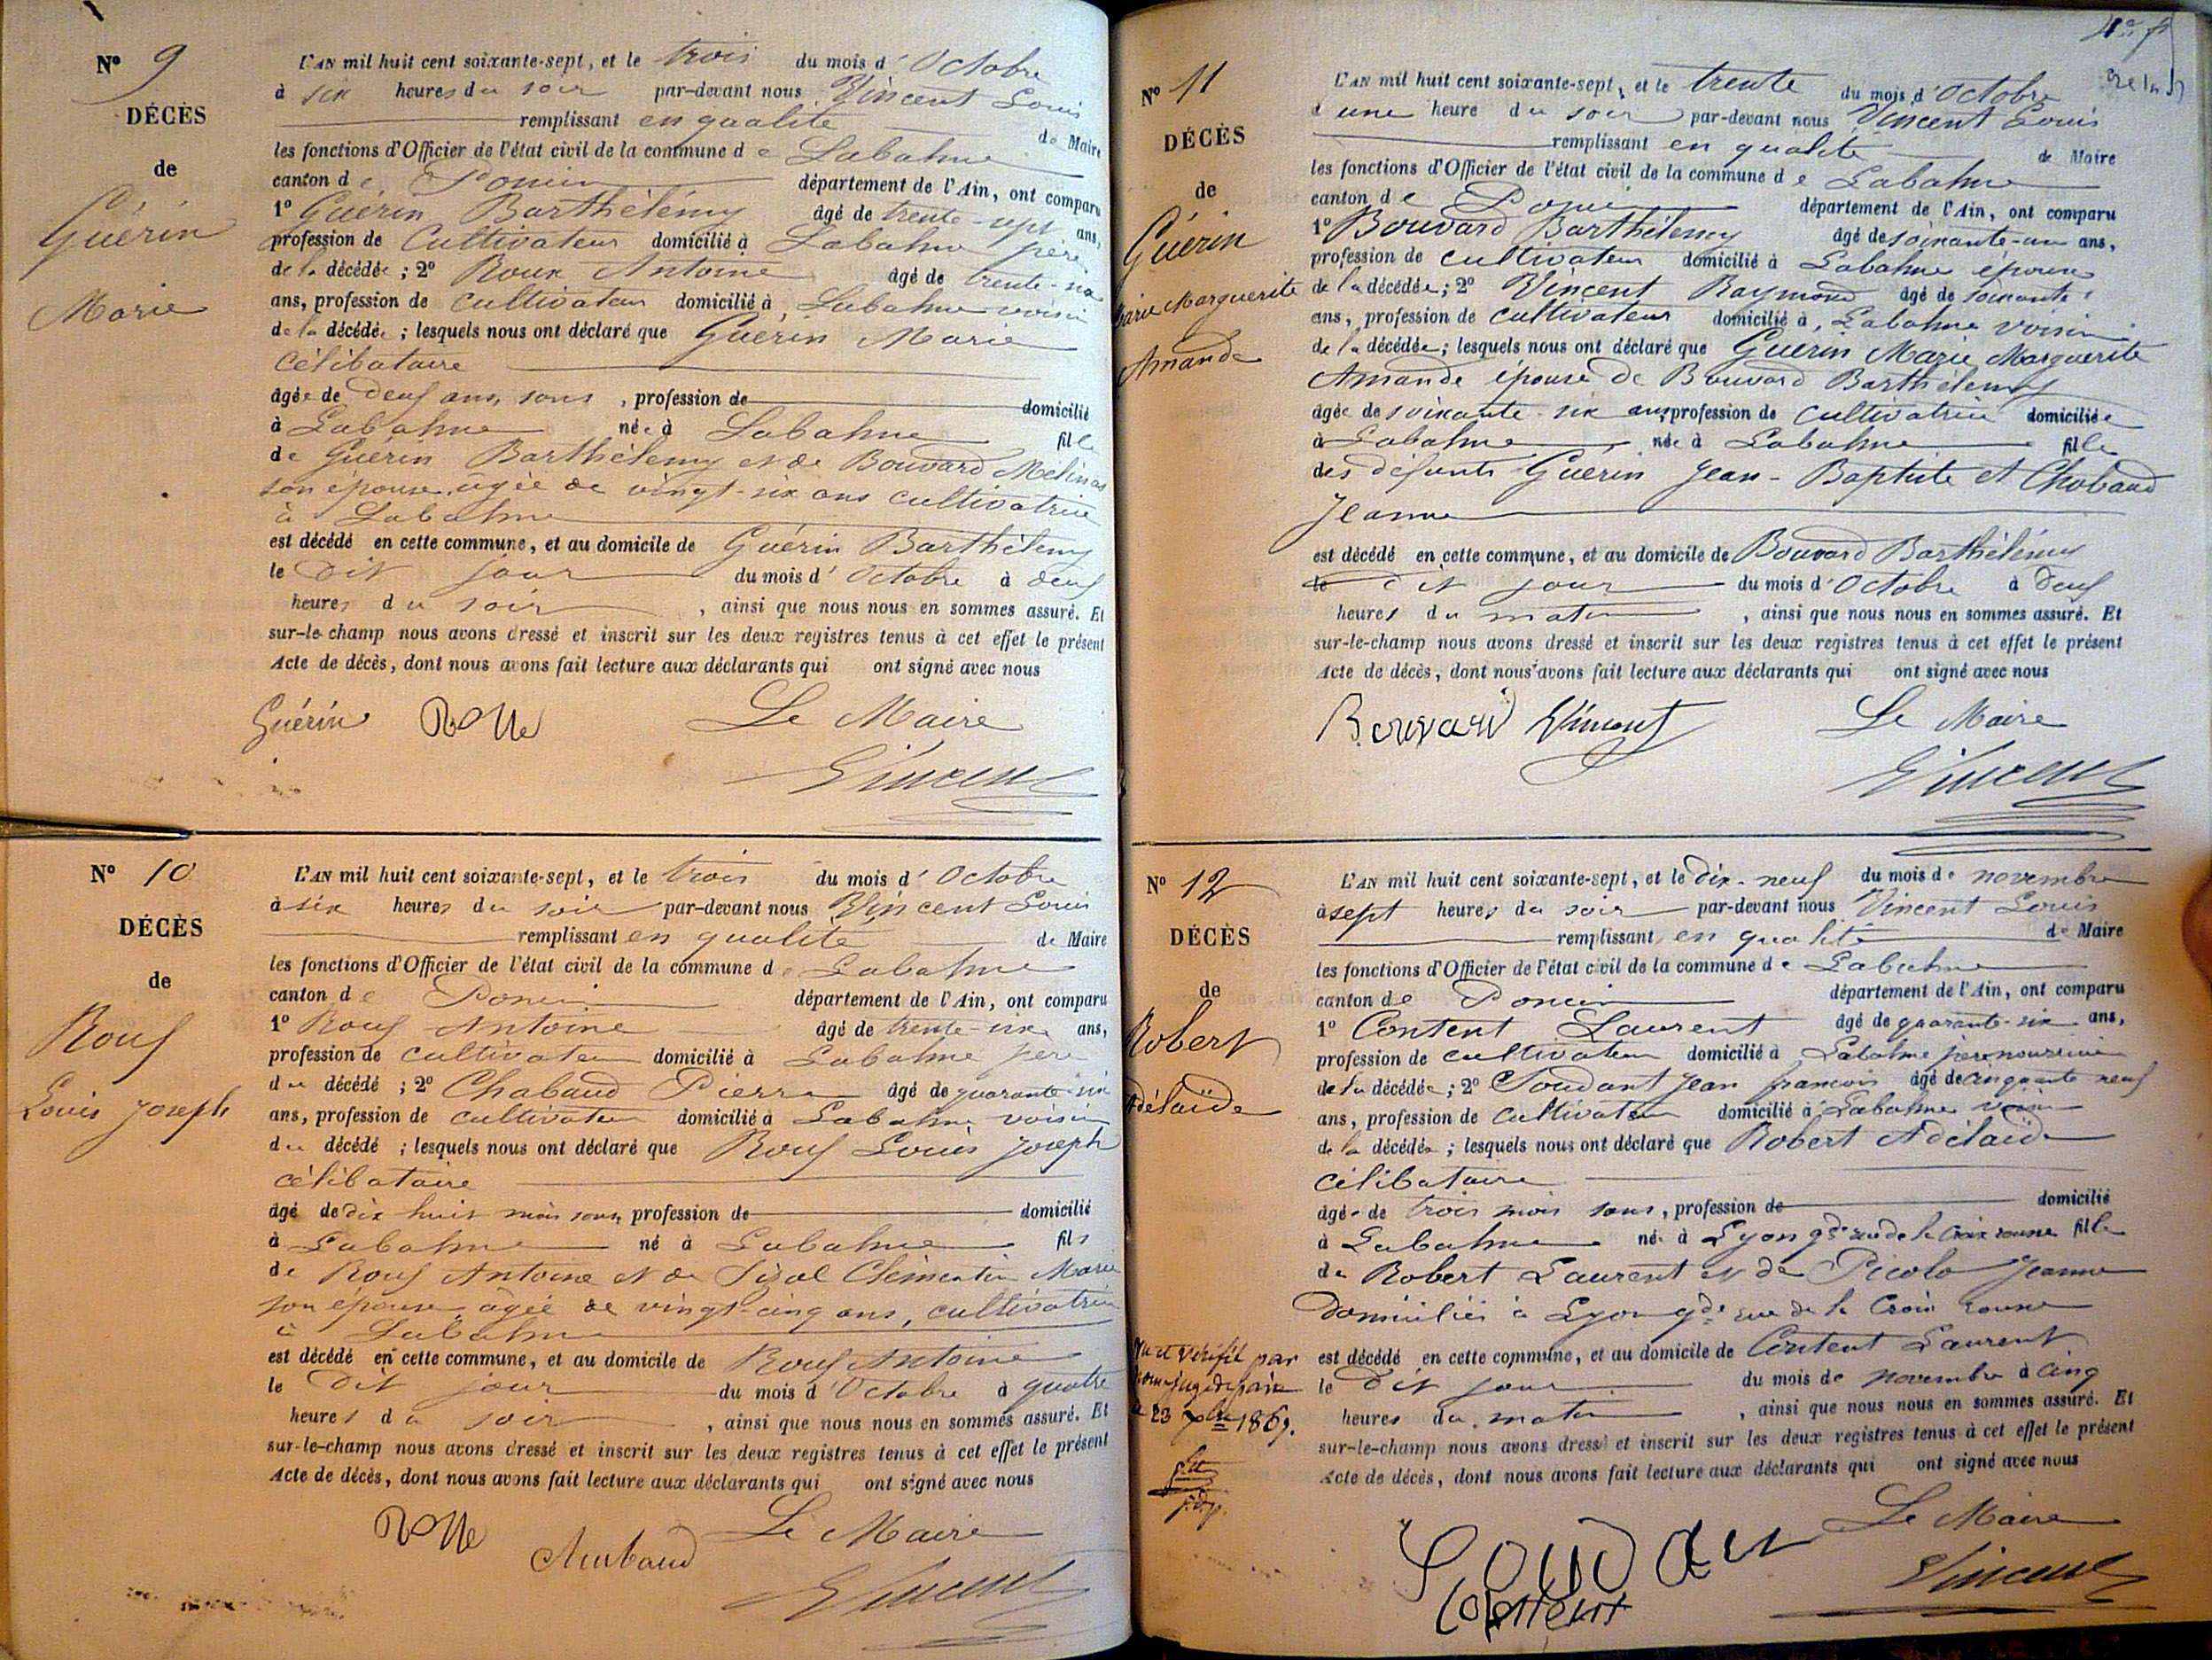 N° 9
DÉCÈS
de
Guérin
Marie
L'AN mil huit cent soixante-sept, et le trois du mois d'Octobre
à six heures du soir par-devant nous Vincent Louis
remplissant en qualité de Maire
les fonctions d'Officier de l'état civil de la commune de Labalme
canton de Poncin département de l'Ain, ont comparu
1° Guérin Barthélémy âgé de trente-sept ans,
profession de Cultivateur domicilié à Labalme père
de la décédée ; 2° Roux Antoine âgé de trente-six
ans, profession de cultivateur domicilié à Labalme voisin
de la décédée ; lesquels nous ont déclaré que Guérin Marie
célibataire
âgée de deux ans, sans , profession de domicilié
à Labalme née à Labalme fille
de Guérin Barthélemy et de Bouvard Melina
son épouse agée de vingt-six ans cultivatrice
à Labalme
est décédé en cette commune, et au domicile de Guérin Barthélemy
le dit jour du mois d'Octobre à deux
heures du soir , ainsi que nous nous en sommes assuré. Et
sur-le-champ nous avons dressé et inscrit sur les deux registres tenus à cet effet le présent
Acte de décès, dont nous avons fait lecture aux déclarants qui ont signé avec nous
Guérin Le Maire
Vincent
N° 10
DÉCÈS
de
Roux
Louis Joseph
L'AN mil huit cent soixante-sept, et le trois du mois d'Octobre
à six heures du soir par-devant nous Vincent Louis
remplissant en qualité de Maire
les fonctions d'Officier de l'état civil de la commune de Labalme
canton de Poncin département de l'Ain, ont comparu
1° Roux Antoine âgé de trente-six ans,
profession de cultivateur domicilié à Labalme père
du décédé ; 2° Chabaud Pierre âgé de quarante-six
ans, profession de cultivateur domicilié à Labalme voisin
du décédé ; lesquels nous ont déclaré que Roux Louis Joseph
célibataire
âgé de dix huit mois sans, profession de domicilié
à Labalme né à Labalme fils
de Roux Antoine et de Clémentine Marie
son épouse âgée de vingt-cinq ans, cultivatrice
à Labalme
est décédé en cette commune, et au domicile de Roux Antoine
le dit jour du mois d'Octobre à quatre
heures du soir , ainsi que nous nous en sommes assuré. Et
sur-le-champ nous avons dressé et inscrit sur les deux registres tenus à cet effet le présent
Acte de décès, dont nous avons fait lecture aux déclarants qui ont signé avec nous
Le Maire
Vincent
N° 11
DÉCÈS
de
Guérin
Marie Marguerite
Amande
L'AN mil huit cent soixante-sept, et le trente du mois d'Octobre
à une heure du soir par-devant nous Vincent Louis
remplissant en qualité de Maire
les fonctions d'Officier de l'état civil de la commune de Labalme
canton de Poncin département de l'Ain, ont comparu
1° Bouvard Barthélemy âgé de soixante-un ans,
profession de cultivateur domicilié à Labalme époux
de la décédée ; 2° Vincent Raymond âgé de soixante
ans, profession de cultivateur domicilié à Labalme voisin
de la décédée ; lesquels nous ont déclaré que Guérin Marie Marguerite
Amande épouse de Bouvard Barthélemy
âgée de soixante-six ans, profession de cultivatrice domiciliée
à Labalme née à Labalme fille
des défunts Guérin Jean-Baptiste et Chabaud
Jeanne
est décédé en cette commune, et au domicile de Bouvard Barthélémy
le dit jour du mois d'Octobre à deux
heures du matin , ainsi que nous nous en sommes assuré. Et
sur-le-champ nous avons dressé et inscrit sur les deux registres tenus à cet effet le présent
Acte de décès, dont nous avons fait lecture aux déclarants qui ont signé avec nous
Bouvard Vincent Le Maire
Vincent
N° 12
DÉCÈS
de
Robert
Adélaïde
L'AN mil huit cent soixante-sept, et le dix-neuf du mois de novembre
à sept heures du soir par-devant nous Vincent Louis
remplissant en qualité de Maire
les fonctions d'Officier de l'état civil de la commune de Labalme
canton de Poncin département de l'Ain, ont comparu
1° Content Laurent âgé de quarante-six ans,
profession de cultivateur domicilié à Labalme père nourricier
de la décédée ; 2° Soudant Jean françois âgé de cinquante neuf
ans, profession de cultivateur domicilié à Labalme voisin
de la décédée ; lesquels nous ont déclaré que Robert Adélaïde
célibataire
âgée de trois mois sans, profession de domicilié
à Labalme née à Lyon gde rue de la Croix rousse fille
de Robert Laurent et de Picolo Jeanne
domiciliés à Lyon gde rue de la Croix rousse
est décédé en cette commune, et au domicile de Content Laurent
le dit jour du mois de novembre à cinq
heures du matin , ainsi que nous nous en sommes assuré. Et
sur-le-champ nous avons dressé et inscrit sur les deux registres tenus à cet effet le présent
Acte de décès, dont nous avons fait lecture aux déclarants qui ont signé avec nous
Vu et vérifié par
nous juge de paix
le 23
Le Maire
Content
Vincent